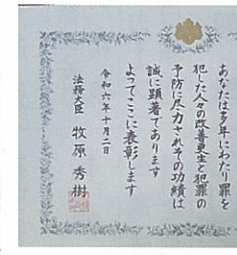 あなたは多年にわたり罪を
犯した人々の改善更生と犯罪の
予防に尽力されその功績は
誠に顕著であります
よってここに表彰します
令和六年十月二日
法務大臣 牧原秀樹